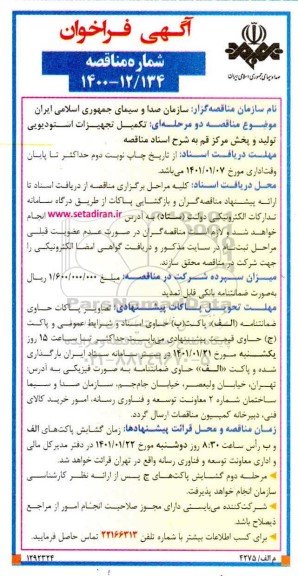 آگهی فراخوان
صدا و سیمای جمهوری اسلامی ایران
شماره مناقصه
۱۴۰۰-۱۲/۱۳۴
نام سازمان مناقصه‌گزار: سازمان صدا و سیمای جمهوری اسلامی ایران
موضوع مناقصه دو مرحله‌ای: تکمیل تجهیزات استودیویی
تولید و پخش مرکز قم به شرح اسناد مناقصه
مهلت دریافت اسناد: از تاریخ چاپ نوبت دوم حداکثر تا پایان
وقت‌اداری مورخ ۱۴۰۱/۰۱/۰۷ می‌باشد.
محل دریافت اسناد: کلیه مراحل برگزاری مناقصه از دریافت اسناد تا
ارائه پیشنهاد مناقصه‌گران و بازگشایی پاکات از طریق درگاه سامانه
تدارکات الکترونیکی دولت (ستاد) به آدرس www.setadiran.ir انجام
خواهد شد. لازم است مناقصه‌گران در صورت عدم عضویت قبلی
مراحل ثبت‌نام در سایت مذکور و دریافت گواهی امضا الکترونیکی را
جهت شرکت در مناقصه محقق سازند.
میزان سپرده شرکت در مناقصه: مبلغ ۱/۶۰۰/۰۰۰/۰۰۰ ریال
به‌صورت ضمانتنامه بانکی قابل تمدید.
مهلت تحویل پاکات پیشنهادی: تصاویر پاکات حاوی
ضمانتنامه (الف)، پاکت(ب) حاوی اسناد و شرایط عمومی و پاکت
(ج) حاوی قیمت پیشنهادی می‌بایست حداکثر تا ساعت ۱۵ روز
یکشنبه مورخ ۱۴۰۱/۰۱/۲۱ در سامانه ستاد ایران بارگذاری
شده و پاکت «الف» حاوی ضمانتنامه به صورت فیزیکی به آدرس:
تهران، خیابان ولیعصر، خیابان جام‌جم، سازمان صدا و سیما
ساختمان شماره ۲ معاونت توسعه و فناوری رسانه، امور خرید کالای
فنی، دبیرخانه کمیسیون مناقصات ارسال گردد.
زمان مناقصه و محل قرائت پیشنهادها: زمان گشایش پاکت‌های الف
و ب رأس ساعت ۸:۳۰ روز دوشنبه مورخ ۱۴۰۱/۰۱/۲۲ در دفتر مدیرکل مالی
و اداری معاونت توسعه و فناوری رسانه واقع در تهران قرائت خواهد شد.
مرحله دوم گشایش پاکت‌های ج پس از ارائه نظر کارشناسی
سازمان انجام خواهد پذیرفت.
شرکت‌کننده می‌بایستی دارای مجوز صلاحیت انجام امور از مراجع
ذیصلاح باشد.
برای کسب اطلاعات بیشتر با شماره تلفن ۲۲۱۶۶۳۱۳ تماس حاصل فرمایید.
م الف/ ۴۲۷۵
۱۲۹۲۳۲۴